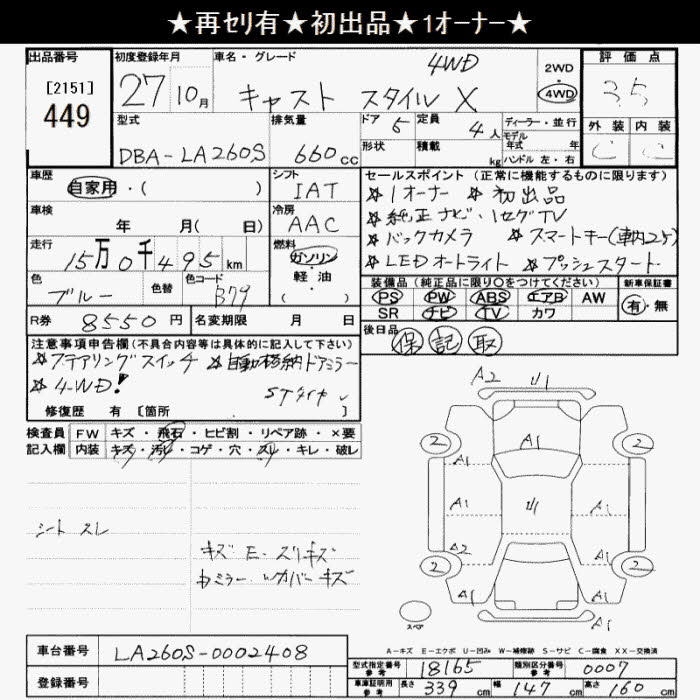 ★再セリ有★初出品★1オーナー★
出品番号 初度登録年月 車名・グレード 評価点
[2151]
449
27 10月 キャスト スタイル X 4WD
2WD
・
4WD
3.5
外装 内装
C C
型式 排気量 ドア 5 定員 4人 ディーラー・並行
モデル
年式 年
形状 積載 kg ハンドル 左・右
DBA-LA260S 660cc
車歴 シフト セールスポイント (正常に機能するものに限ります)
自家用・( ) IAT
☆1オーナー ☆初出品
車検 冷房
年 月( 日) AAC
☆純正ナビ・1セグTV
☆バックカメラ ☆スマートキー(車内2ケ)
☆LEDオートライト ☆プッシュスタート
走行 燃料
15万0千495km ガソリン
・
軽・油
( )
色 色替 色コード
ブルー B79
装備品 (純正品に限り〇をつけてください) 新車保証書
PS PW ABS エアB AW 有・無
SR ナビ TV カワ
R券 8550円 名変期限 月 日
後日品 保 記 取
注意事項申告欄 (不具合内容等は具体的に記入して下さい)
☆ステアリングスイッチ ☆自動格納ドアミラー
☆4WD!
修復歴 有 [箇所 ]
検査員 FW キズ・飛石・ヒビ割・リペア跡・×要
記入欄 内装 キズ・汚レ・コゲ・穴・スレ・キレ・破レ
シート スレ
キズ E・スリキズ
カバー キズ
A2 U1
2 A1 2
A1
A1 U1 A1
A2 A1
2 2
A1 A1
A1
スペア
A-キズ E-エクボ U-凹み W-補修跡 S-サビ C-腐食 XX-交換済
車台番号 LA260S-0002408
登録番号
型式指定番号
参考
18165
類別区分番号
参考
0007
車庫証明用
参考
長さ 339cm 幅 147cm 高さ 160cm